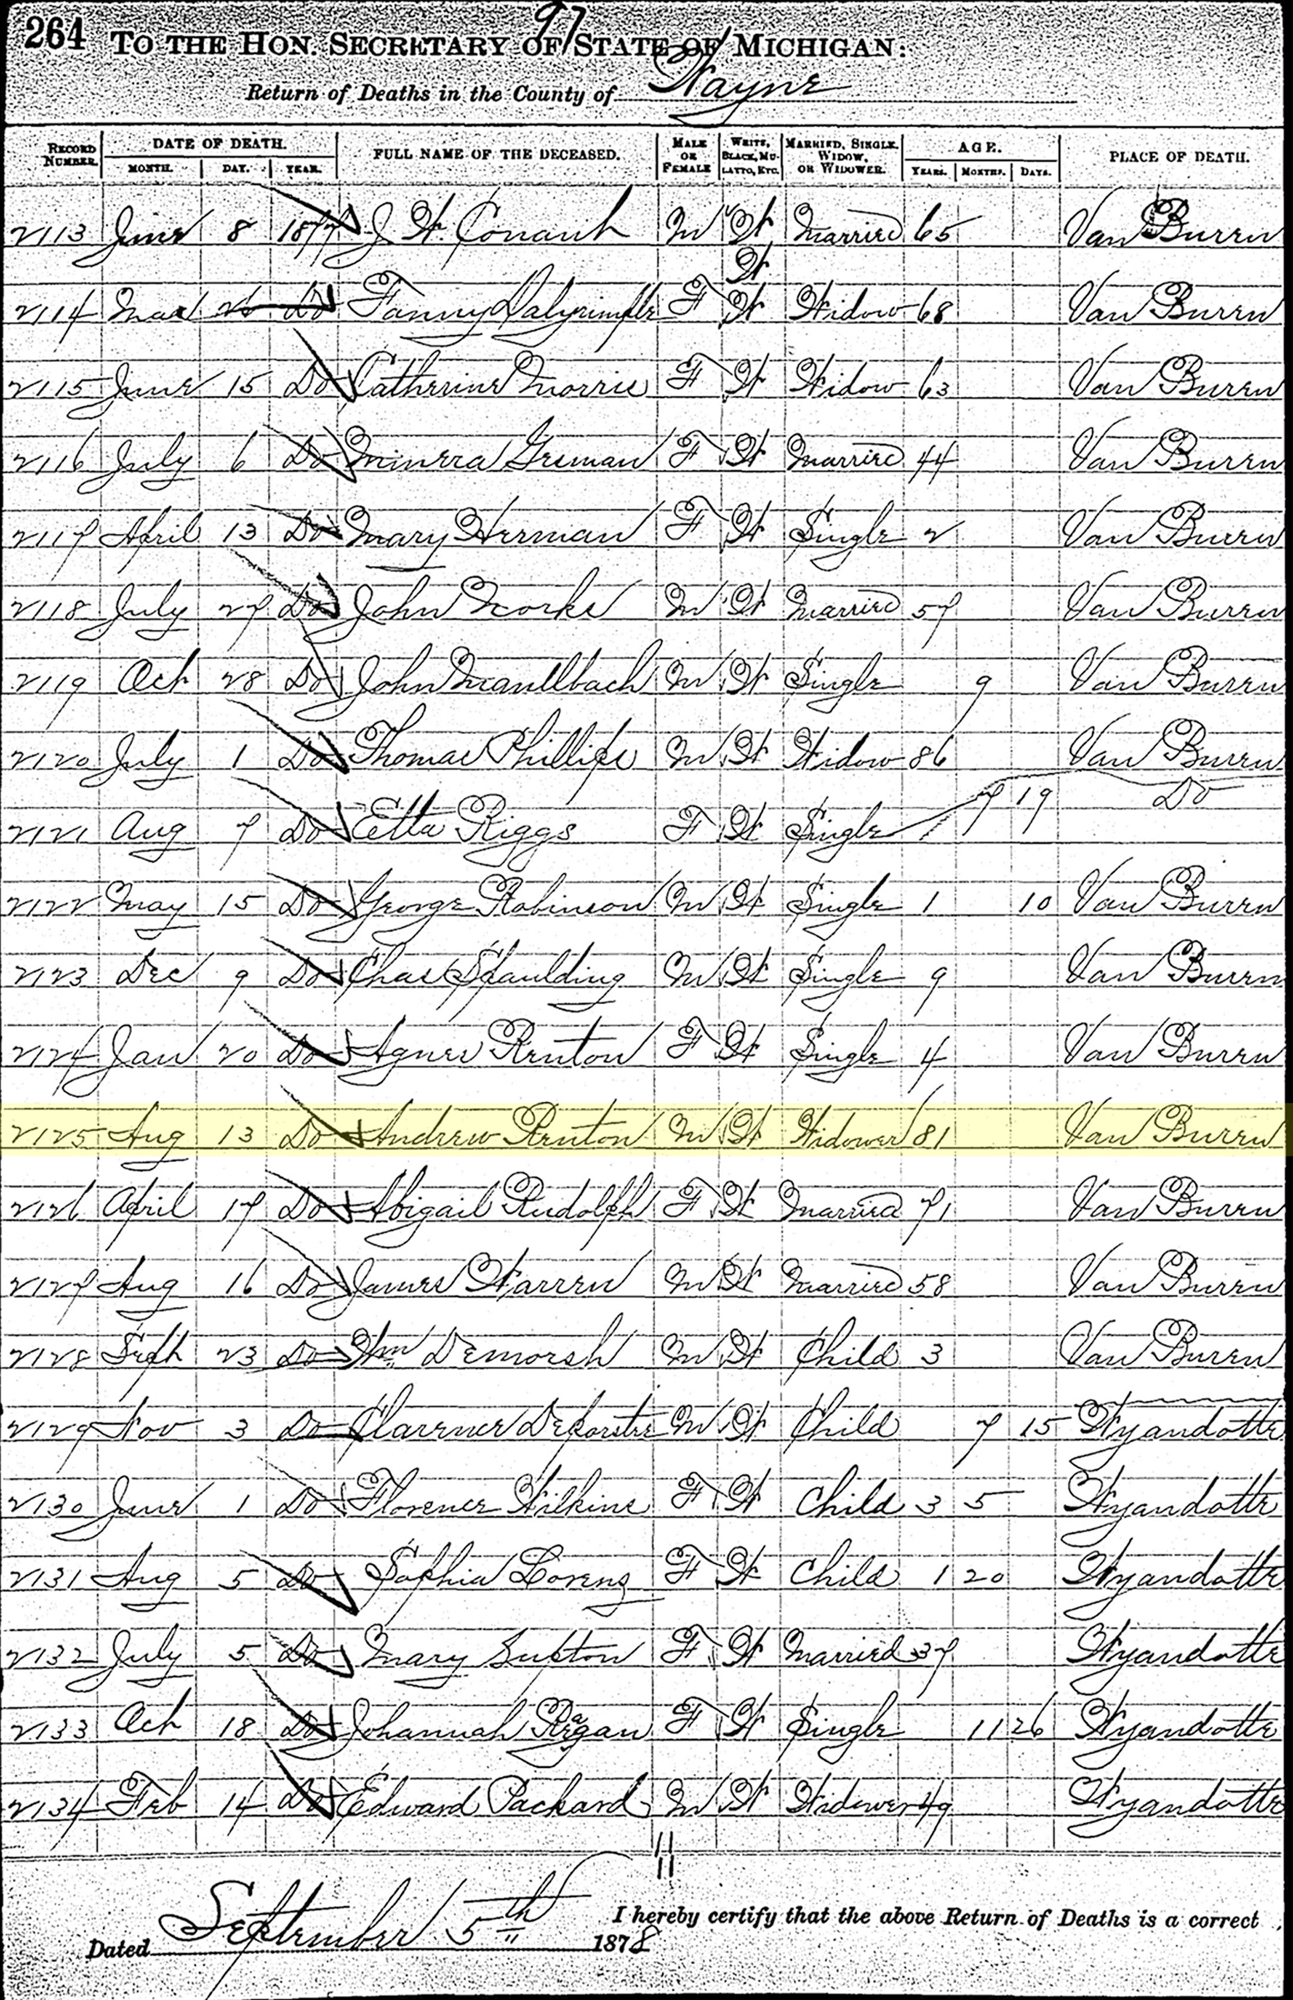 264 TO THE HON. SECRETARY OF STATE OF MICHIGAN:
97
Return of Deaths in the County of Wayne
RECORD NUMBER. DATE OF DEATH. MONTH. DAY. YEAR. FULL NAME OF THE DECEASED. MALE OR FEMALE WHITE, BLACK, MULATTO, ETC. MARRIED, SINGLE, WIDOW, OR WIDOWER. AGE. YEARS. MONTHS. DAYS. PLACE OF DEATH.
2113 June 8 1877 J W Conant M W Married 65 Van Buren
W
2114 Mar 26 Do Fanny Dalyrimple F W Widow 68 Van Buren
2115 June 15 Do Catherine Morris F W Widow 63 Van Buren
2116 July 6 Do Minerva German F W Married 44 Van Buren
2117 April 13 Do Mary Herman F W Single 2 Van Buren
2118 July 27 Do John Morke M W Married 57 Van Buren
2119 Oct 28 Do John Maullbach M W Single 9 Van Buren
2120 July 1 Do Thomas Phillips M W Widow 86 Van Buren
2121 Aug 7 Do Etta Riggs F W Single 7 19 Do
2122 May 15 Do George Robinson M W Single 1 10 Van Buren
2123 Dec 9 Do Chas Spaulding M W Single 9 Van Buren
2124 Jan 20 Do Agnes Renton F W Single 4 Van Buren
2125 Aug 13 Do Andrew Renton M W Widower 81 Van Buren
2126 April 17 Do Abigail Rudolph F W Married 71 Van Buren
2127 Aug 16 Do James Warren M W Married 58 Van Buren
2128 Sept 23 Do Wm Demorsh M W Child 3 Van Buren
2129 Nov 3 Do Clarence M W Child 7 15 Wyandotte
2130 June 1 Do Florence Wilkins F W Child 3 5 Wyandotte
2131 Aug 5 Do Sophia Lorenz F W Child 1 20 Wyandotte
2132 July 5 Do Mary Supton F W Married 37 Wyandotte
2133 Oct 18 Do Johannah Ragan F W Single 11 26 Wyandotte
2134 Feb 14 Do Edward Packard M W Widower 49 Wyandotte
I hereby certify that the above Return of Deaths is a correct
Dated September 5th 1878